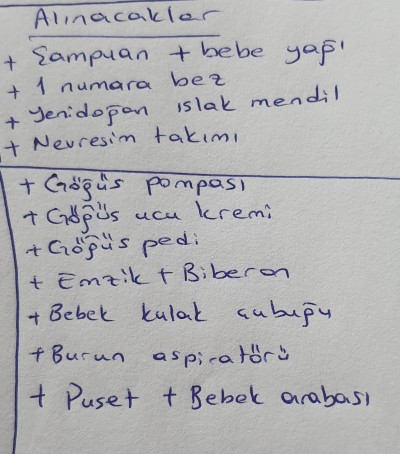 Alınacaklar
+ Şampuan + bebe yağı
+ 1 numara bez
+ Yenidoğan ıslak mendil
+ Nevresim takımı
+ Göğüs pompası
+ Göğüs ucu kremi
+ Göğüs pedi
+ Emzik + Biberon
+ Bebek kulak çubuğu
+ Burun aspiratörü
+ Puset + Bebek arabası